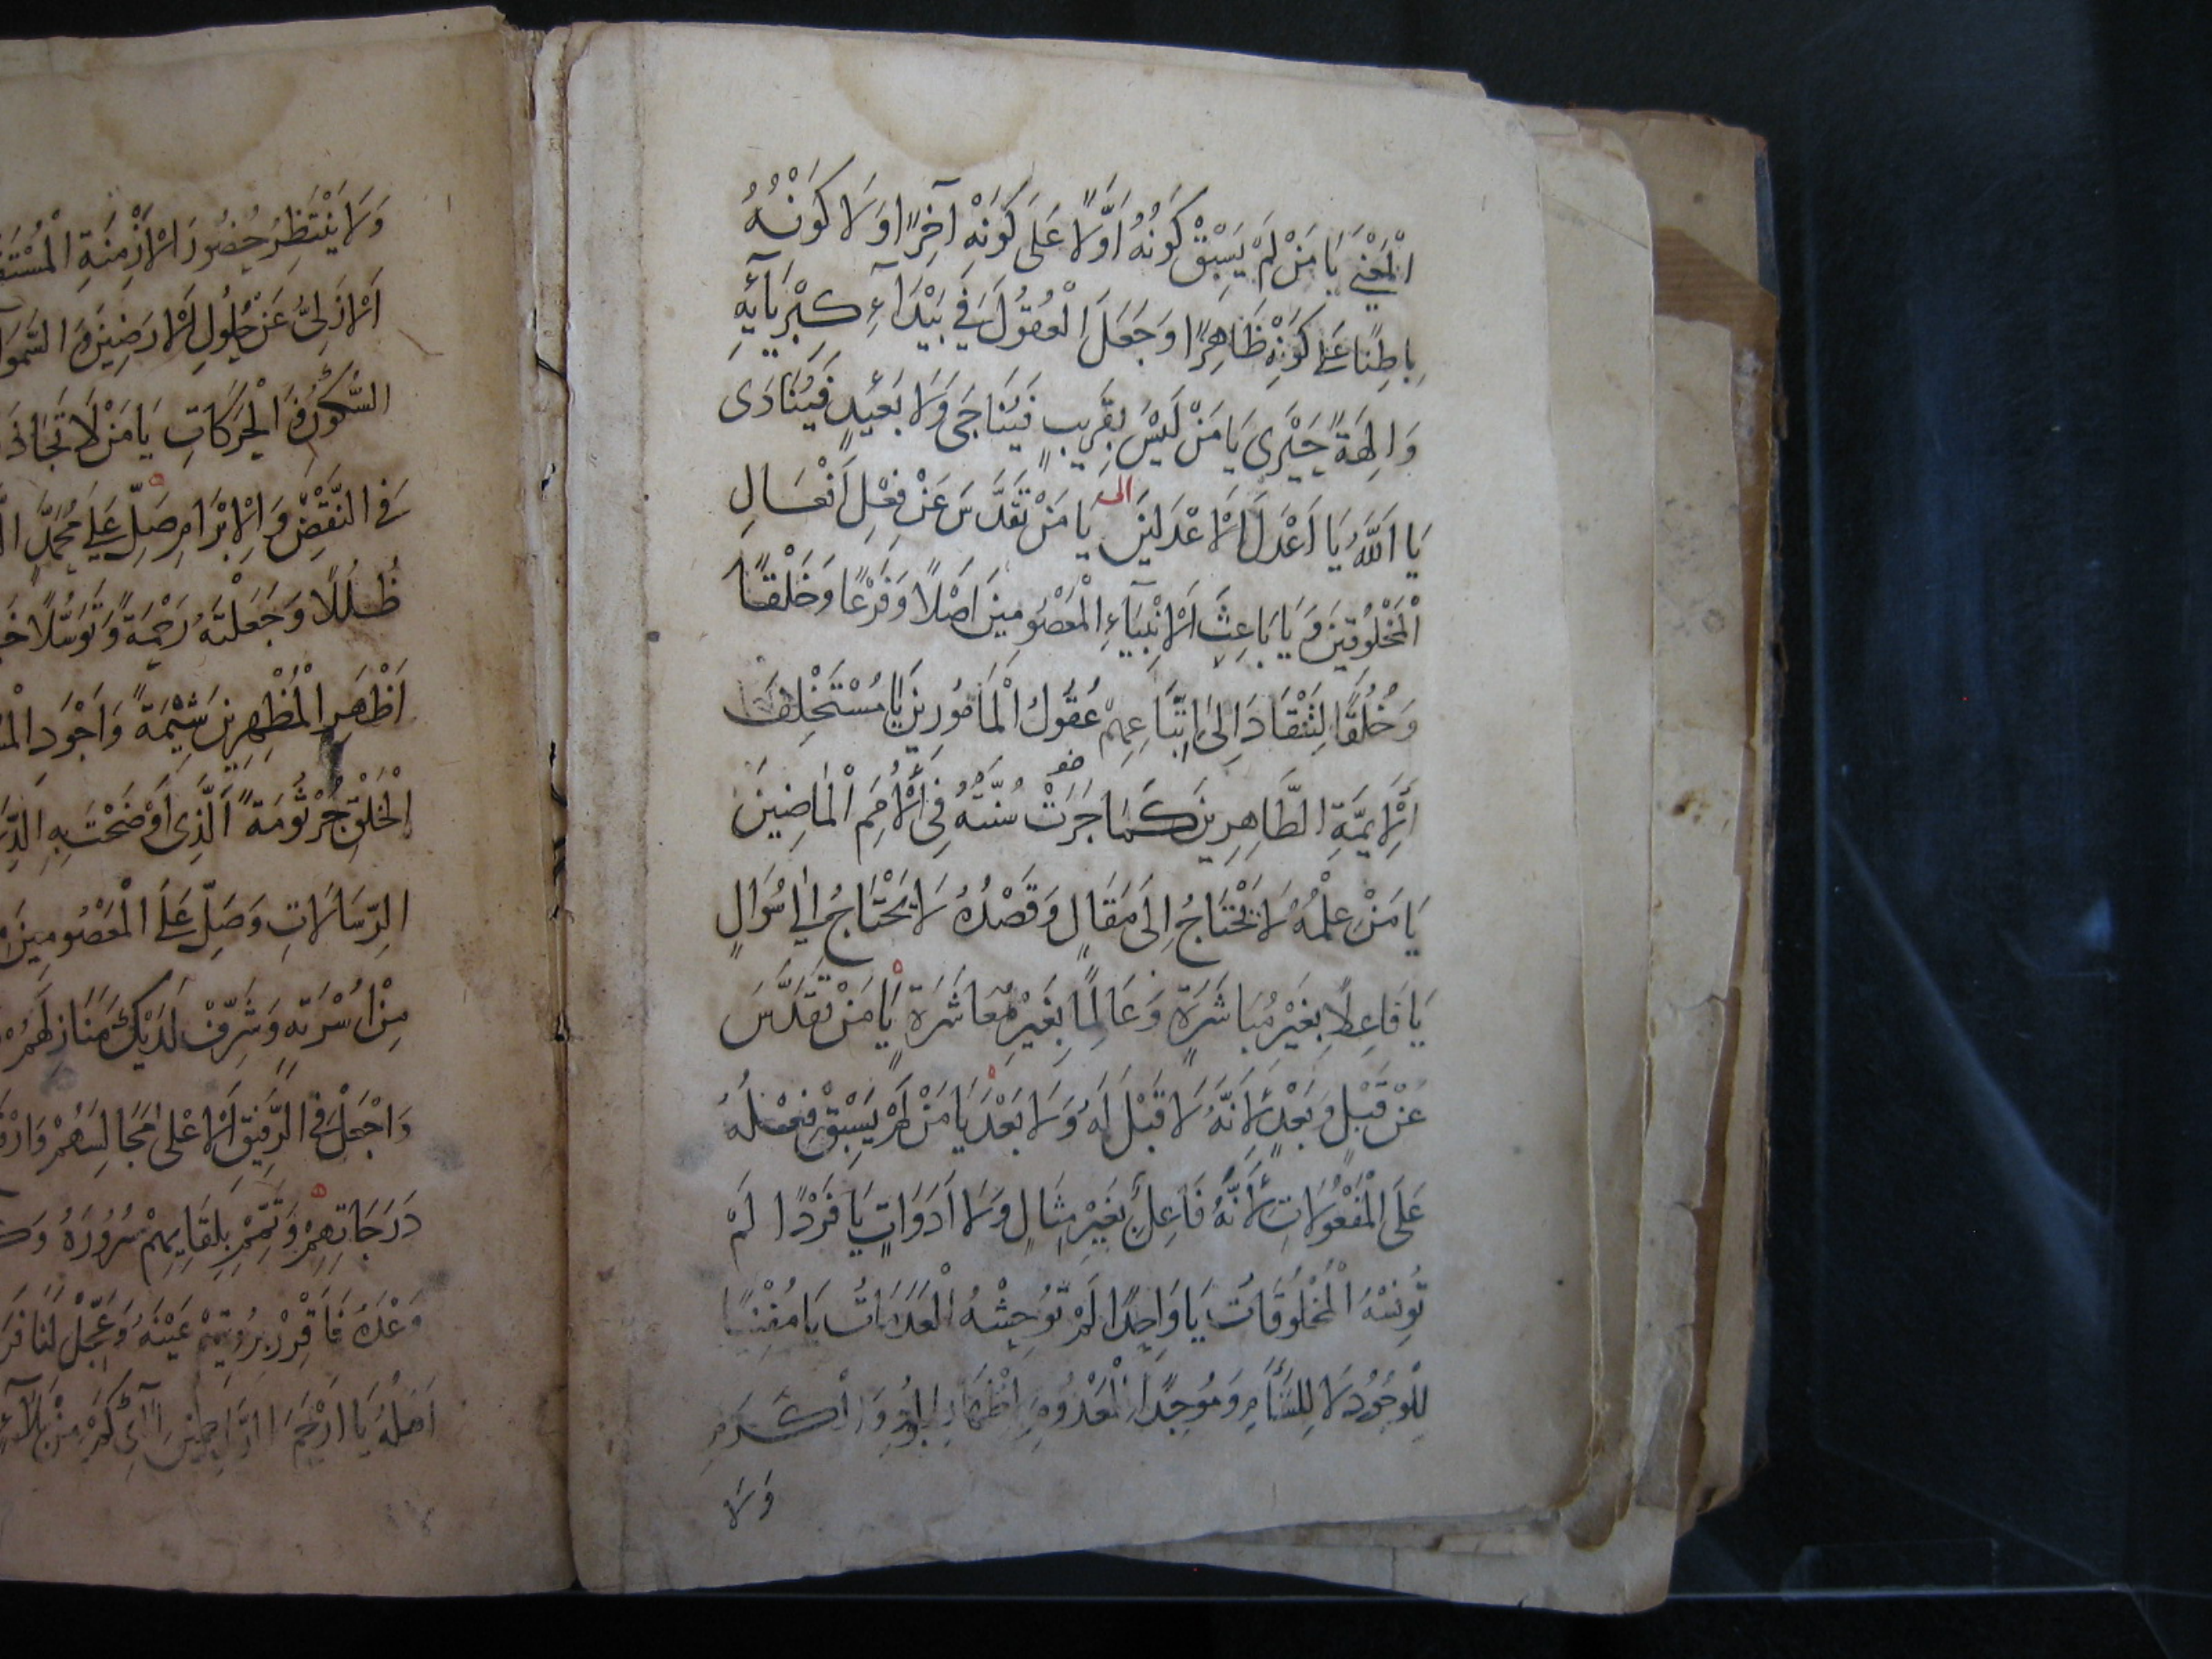 الْمُغْنِي يَا مَنْ لَمْ يَسْبِقْ كَوْنُهُ اَوَّلًا عَلَى كَوْنِهْ آخِرًا وَلَا كَوْنُهُ
بِاطِنًا عَلَى كَوْنِهِ ظَاهِرًا وَجَعَلَ الْعُقُولَ فِي بَيْدَآءِ كِبْرِيَآئِهِ
وَالِهَةً حَيْرَى يَا مَنْ لَيْسَ بِقَرِيبٍ فَيُنَاجَى وَلَا بَعِيدٍ فَيُنَادَى
يَا اَللَّهُ يَا اَعْدَلَ الْاَعْدَلِينَ الى يَا مَنْ تَقَدَّسَ عَنْ فِعْلِ اَفْعَالِ
الْمَخْلُوقِينَ وَيَا بَاعِثَ الْاَنْبِيَآءِ الْمَعْصُومِينَ اَصْلًا وَفَرْعًا وَخَلْقًا
وَخُلُقًا لِتَنْقَادَ اِلَى اتِّبَاعِهِمْ عُقُولُ الْمَأْمُورِينَ يَا مُسْتَخْلِفَ
الْاَئِمَّةِ الطَّاهِرِينَ كَمَا جَرَتْ سُنَّتُهُ فِي الْأُمَمِ الْمَاضِينَ
يَا مَنْ عِلْمُهُ لَا يَحْتَاجُ اِلَى مَقَالٍ وَقَصْدُهُ لَا يَحْتَاجُ اِلَى سُوَالٍ
يَا فَاعِلًا بِغَيْرِ مُبَاشَرَةٍ وَعَالِمًا بِغَيْرِ مُعَاشَرَةٍ يَا مَنْ تَقَدَّسَ
عَنْ قَبْلٍ وَبَعْدٍ لِأَنَّهُ لَا قَبْلَ لَهُ وَلَا بَعْدَ يَا مَنْ لَمْ يَسْبِقْ فِعْلُهُ
عَلَى الْمَفْعُولَاتِ لِأَنَّهُ فَاعِلٌ بِغَيْرِ مِثَالٍ وَلَا اَدَوَاتٍ يَا فَرْدًا لَمْ
تُونِسْهُ الْمَخْلُوقَاتُ يَا وَاحِدًا لَمْ تُوحِشْهُ الْعَدَمَاتُ يَا مُفْنِيًا
لِلْوُجُودِ لَا لِلسَّأَمِ وَمُوجِدًا الْمَعْدُومِ اِظْهَار وَالْكَرَمِ
وَلَا
وَلَا يَنْتَظِرُ حُضُورَ الْاَزْمِنَةِ
اَلْاَزَلِيُّ عَنْ حُلُولِ الْاَرَضِينَ وَ
السُّكُونُ وَالْحَرَكَاتِ يَا مَنْ لَا
فِي النَّقْضِ وَالْاِبْرَامِ صَلِّ عَلَى مُحَمَّدٍ
ظُلَلًا وَجَعَلْتَهُ رَحْمَةً وَتَوَسُّلًا
اَظْهَرِ الْمُظْهِرِينَ شِيمَةً وَاَجْوَدِ
الْخَلْقِ جُرْثُومَةً اَلَّذِي اَوْضَحْتَ بِهِ
الرِّسَالَاتِ وَصَلِّ عَلَى الْمَعْصُومِينَ
مِنْ اُسْرَتِهِ وَشَرِّفْ لَدَيْكَ مَنَازِلَهُمْ
وَاجْعَلْ فِي الرَّفِيقِ الْاَعْلَى مَجَالِسَهُمْ
دَرَجَاتِهِمْ وَتَمِّمْ بِلِقَائِهِمْ سُرُورَهُ
وَعْدَكَ فَاَقْرِرْ بِرُؤْيَتِهِمْ عَيْنَهُ وَعَجِّلْ لَنَا
اَهْلُهُ يَا اَرْحَمَ الرَّاحِمِينَ